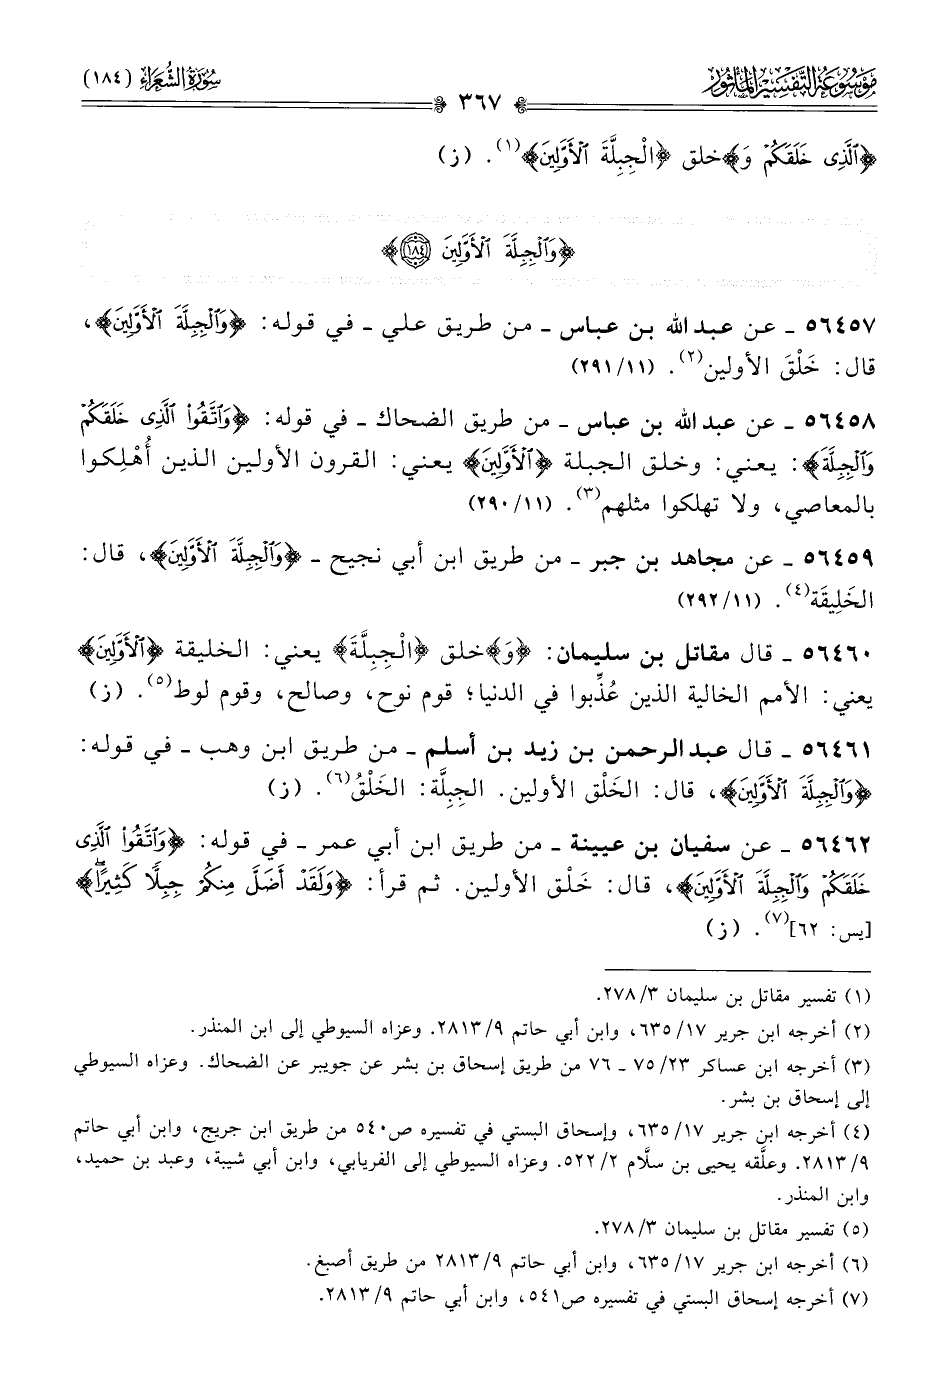 مَوْسُوعَة التَّفْسِير المَأْثُور
٣٦٧
سُورَةُ الشُّعَرَاءِ (١٨٤)
﴿ٱلَّذِى خَلَقَكُمْ وَ﴾خلق ﴿الْجِبِلَّةَ ٱلْأَوَّلِينَ﴾(١). (ز)
﴿وَٱلْجِبِلَّةَ ٱلْأَوَّلِينَ ١٨٤﴾
٥٦٤٥٧ ـ عن عبد الله بن عباس ـ من طريق علي ـ في قوله: ﴿وَٱلْجِبِلَّةَ ٱلْأَوَّلِينَ﴾،
قال: خَلْقَ الأولين(٢). (٢٩١/١١)
٥٦٤٥٨ ـ عن عبد الله بن عباس ـ من طريق الضحاك ـ في قوله: ﴿وَٱتَّقُوا۟ ٱلَّذِى خَلَقَكُمْ
وَٱلْجِبِلَّةَ﴾: يعني: وخلق الجبلة ﴿ٱلْأَوَّلِينَ﴾ يعني: القرون الأولين الذين أُهْلِكوا
بالمعاصي، ولا تهلكوا مثلهم(٣). (٢٩٠/١١)
٥٦٤٥٩ ـ عن مجاهد بن جبر ـ من طريق ابن أبي نجيح ـ ﴿وَٱلْجِبِلَّةَ ٱلْأَوَّلِينَ﴾، قال:
الخَلِيقَة(٤). (٢٩٢/١١)
٥٦٤٦٠ ـ قال مقاتل بن سليمان: ﴿وَ﴾خلق ﴿الْجِبِلَّةَ﴾ يعني: الخليقة ﴿ٱلْأَوَّلِينَ﴾
يعني: الأمم الخالية الذين عُذِّبوا في الدنيا؛ قوم نوح، وصالح، وقوم لوط(٥). (ز)
٥٦٤٦١ ـ قال عبد الرحمن بن زيد بن أسلم ـ من طريق ابن وهب ـ في قوله:
﴿وَٱلْجِبِلَّةَ ٱلْأَوَّلِينَ﴾، قال: الخَلْق الأولين. الجِبِلَّة: الخَلْقُ(٦). (ز)
٥٦٤٦٢ ـ عن سفيان بن عيينة ـ من طريق ابن أبي عمر ـ في قوله: ﴿وَٱتَّقُوا۟ ٱلَّذِى
خَلَقَكُمْ وَٱلْجِبِلَّةَ ٱلْأَوَّلِينَ﴾، قال: خَلْق الأولين. ثم قرأ: ﴿وَلَقَدْ أَضَلَّ مِنكُمْ جِبِلًّا كَثِيرًا﴾
[يس: ٦٢](٧). (ز)
(١) تفسير مقاتل بن سليمان ٢٧٨/٣.
(٢) أخرجه ابن جرير ٦٣٥/١٧، وابن أبي حاتم ٢٨١٣/٩. وعزاه السيوطي إلى ابن المنذر.
(٣) أخرجه ابن عساكر ٧٥/٢٣ ـ ٧٦ من طريق إسحاق بن بشر عن جويبر عن الضحاك. وعزاه السيوطي
إلى إسحاق بن بشر.
(٤) أخرجه ابن جرير ٦٣٥/١٧، وإسحاق البستي في تفسيره ص٥٤٠ من طريق ابن جريج، وابن أبي حاتم
٢٨١٣/٩. وعلَّقه يحيى بن سلَّام ٥٢٢/٢. وعزاه السيوطي إلى الفريابي، وابن أبي شيبة، وعبد بن حميد،
وابن المنذر.
(٥) تفسير مقاتل بن سليمان ٢٧٨/٣.
(٦) أخرجه ابن جرير ٦٣٥/١٧، وابن أبي حاتم ٢٨١٣/٩ من طريق أصبغ.
(٧) أخرجه إسحاق البستي في تفسيره ص٥٤١، وابن أبي حاتم ٢٨١٣/٩.